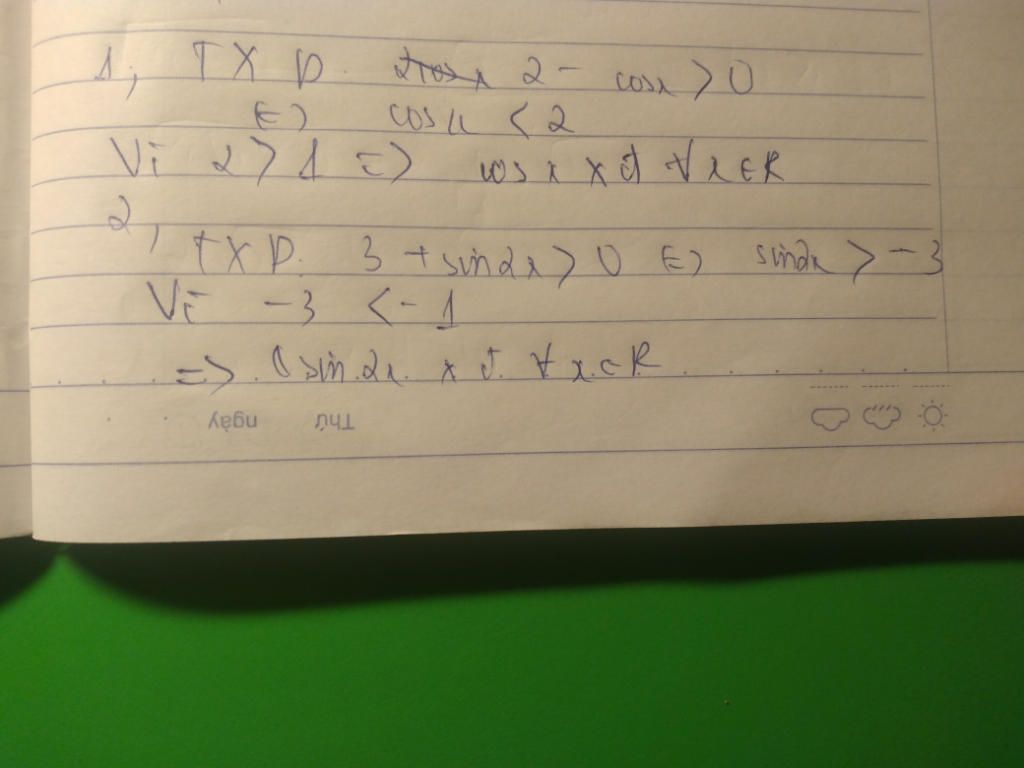 1, TXD. 2 - cosx > 0
<=> cosx < 2
Vì 2 > 1 => cos x xđ ∀x∈R
2,
TXD. 3 + sin2x > 0 <=> sin2x > -3
Vì -3 < -1
=> sin 2x xđ. ∀x∈R
Thứ ngày